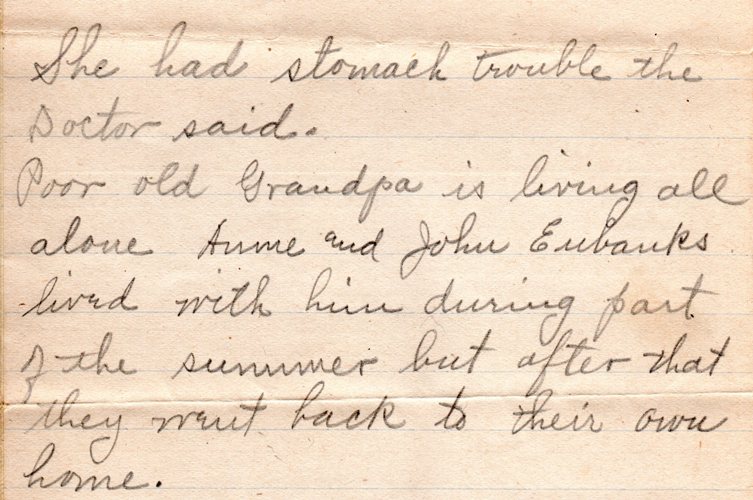 She had stomach trouble the
Doctor said.
Poor old Grandpa is living all
alone Anne and John Eubanks
lived with him during part
of the summer but after that
they went back to their own
home.